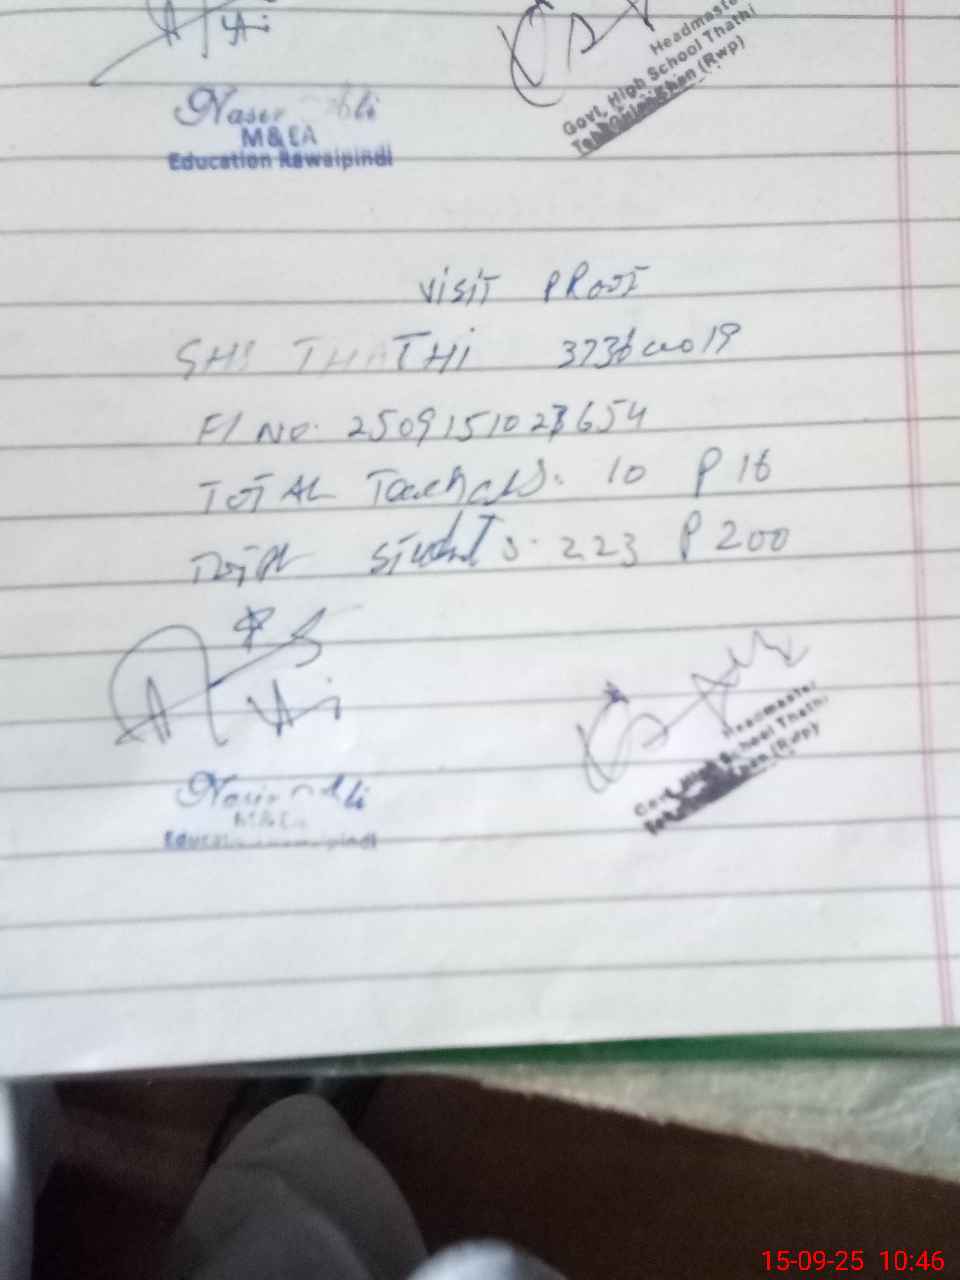 Headmaster
Govt. High School Thathi
(Rwp)
Nasir Ali
M&EA
Education Rawalpindi
VISIT PROOF
GHS THATHI 37360019
FI NO. 2509151023654
TOTAL Teachers. 10 P 10
Total Students. 223 P 200
Headmaster
Govt. High School Thathi
(Rwp)
Nasir Ali
M&EA
Education Rawalpindi
15-09-25 10:46